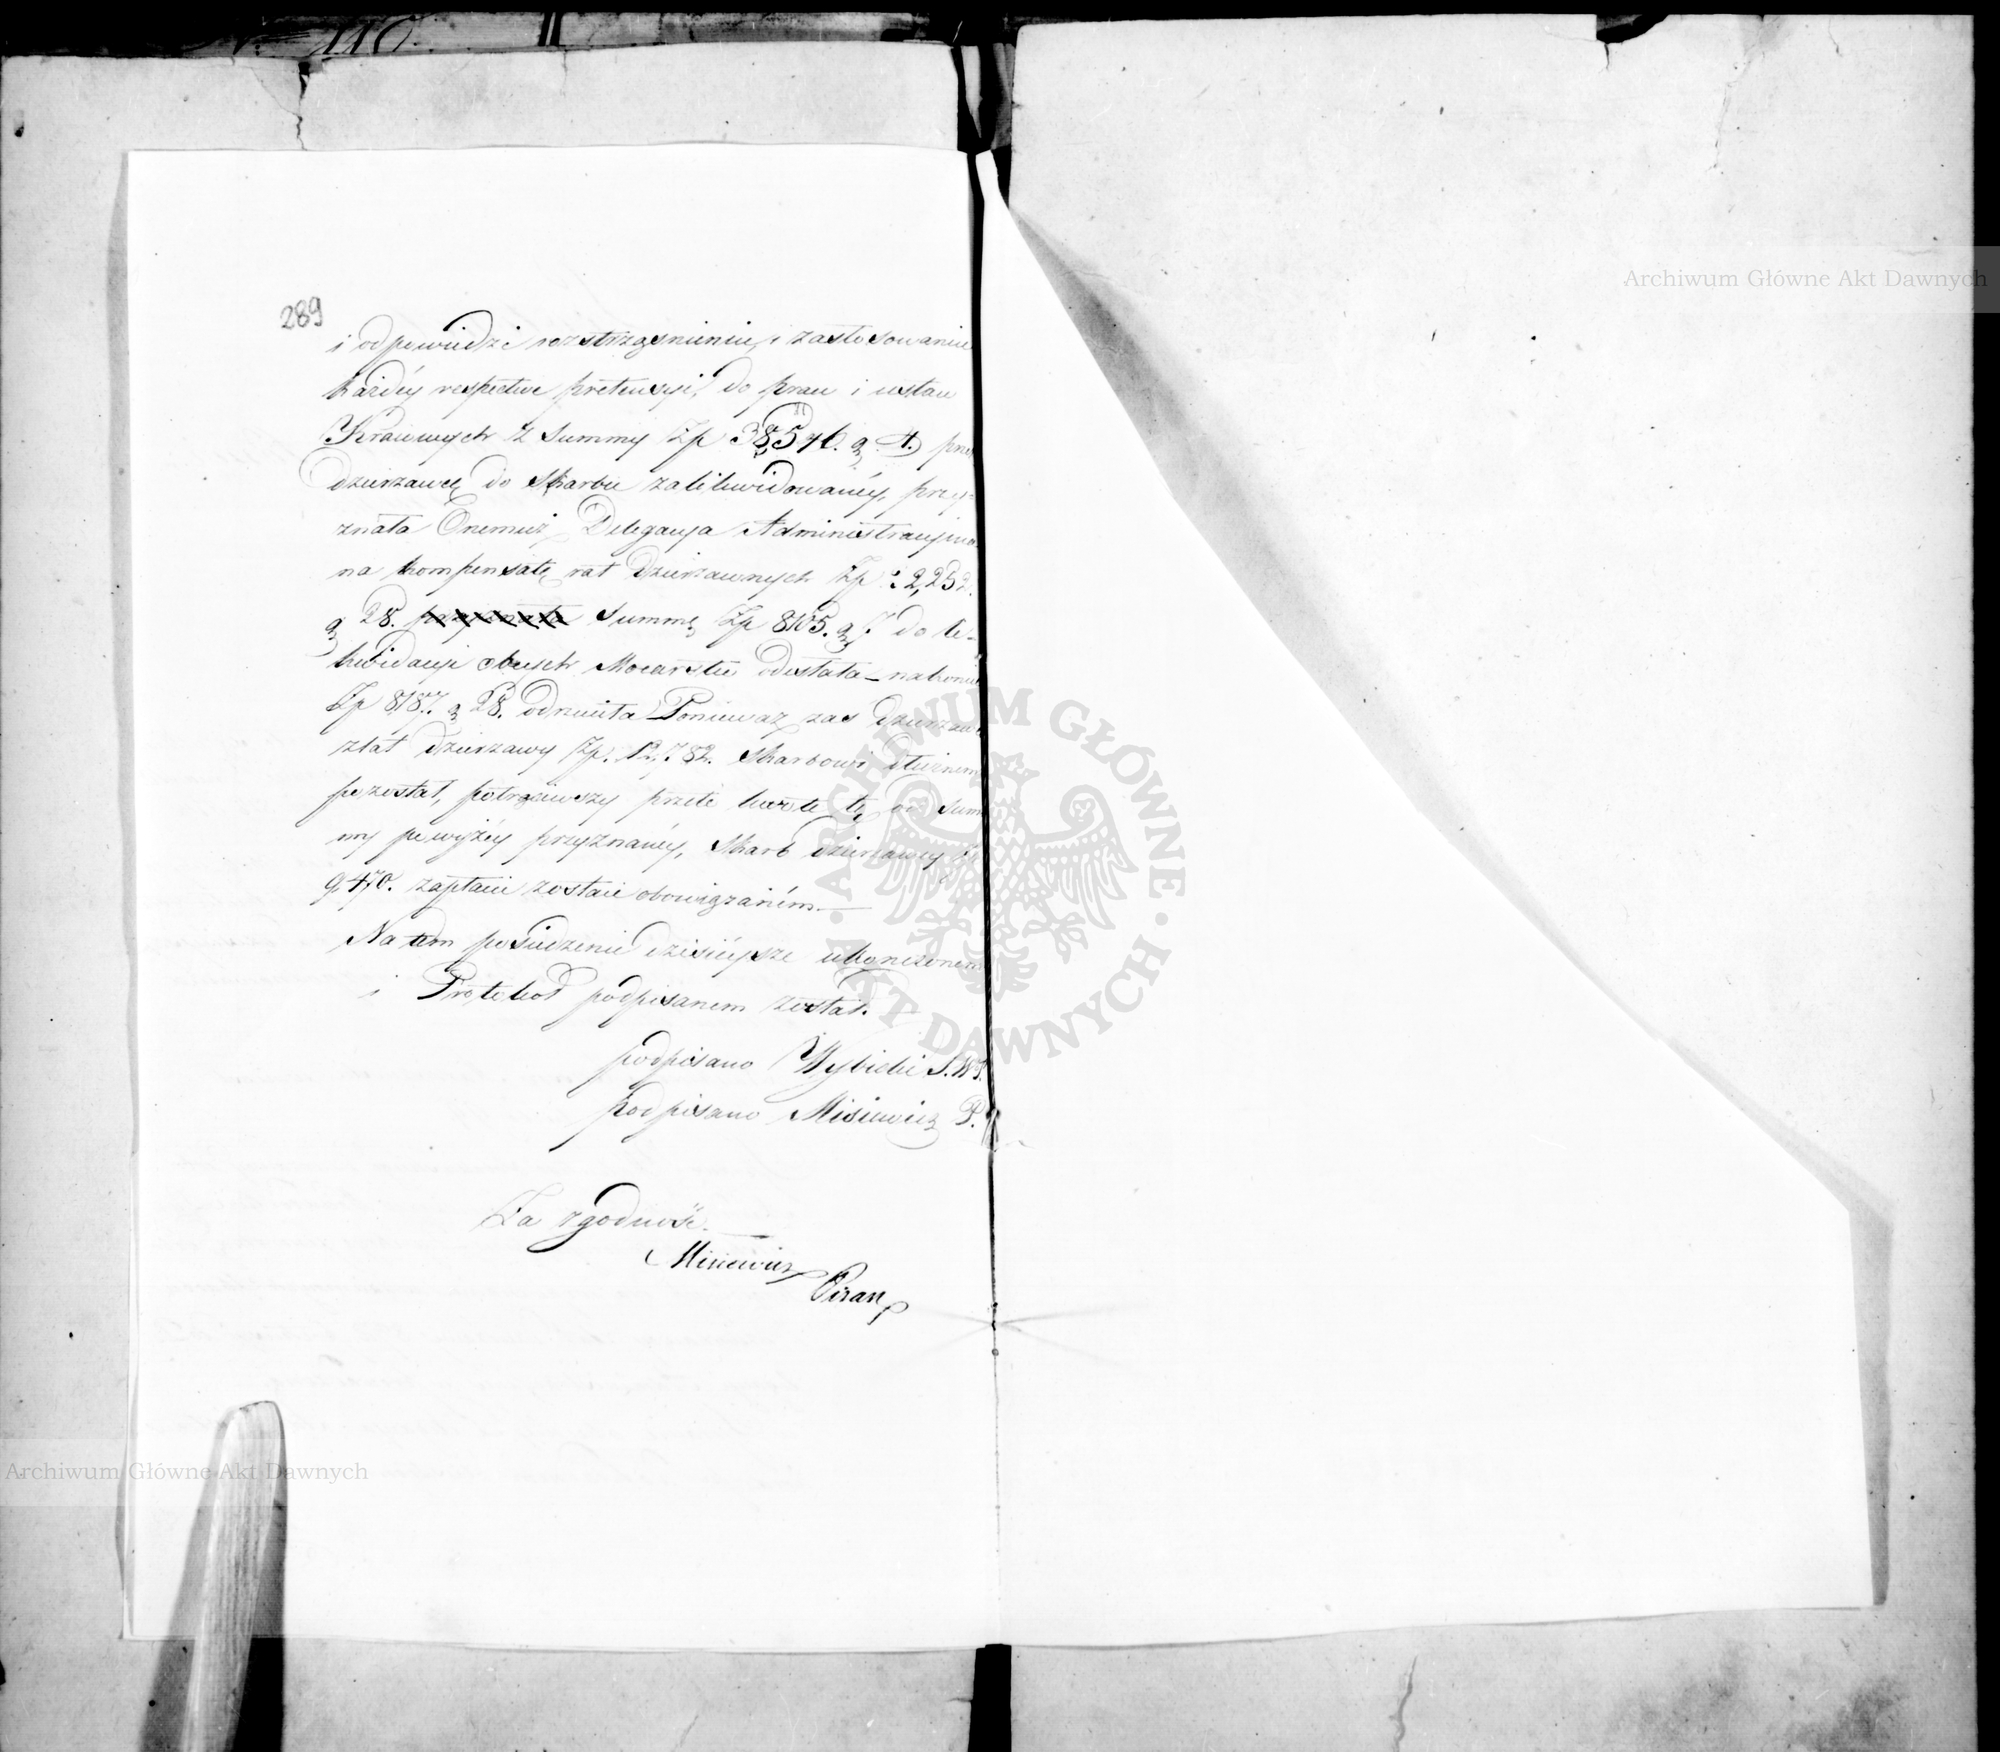 110.
289
i odpowiedzi rozstrząśnieniu, i zastosowaniu
każdéy respective pretensyi, do praw i ustaw
Kraiowych z Summy Zp 38576. g 1. prze
dzierzawcę do Skarbu zalikwidowanéy, przy-
znała Onemuż Delegacya Administracyina
na kompensatę rat dzierzawnych Zp 22,252.
g 28. przyznała summę Zp 8105. g do li-
kwidacyi obcych Mocarstw odesłała – nakoniec
Zp 8187. g 28. odrzuciła Ponieważ zas dzierzaw
z lat dzierzawy Zp. 12,782. Skarbowi dłużnem
pozostał, potrąciwszy przeto kwotę tę, od Sum
my powyżéy przyznanéy, Skarb dzierzawcy Zp
9,470. zapłacić zostaie obowiązaném. –
Na tém posiedzenie dzisiéysze ukończonem
i Protokoł podpisanem został.
podpisano Wybicki S. W.
podpisano Misiewicz P.
Za zgodność. –
Misiewicz
Pisarz
ARCHIWUM GŁÓWNE AKT DAWNYCH
Archiwum Główne Akt Dawnych
Archiwum Główne Akt Dawnych